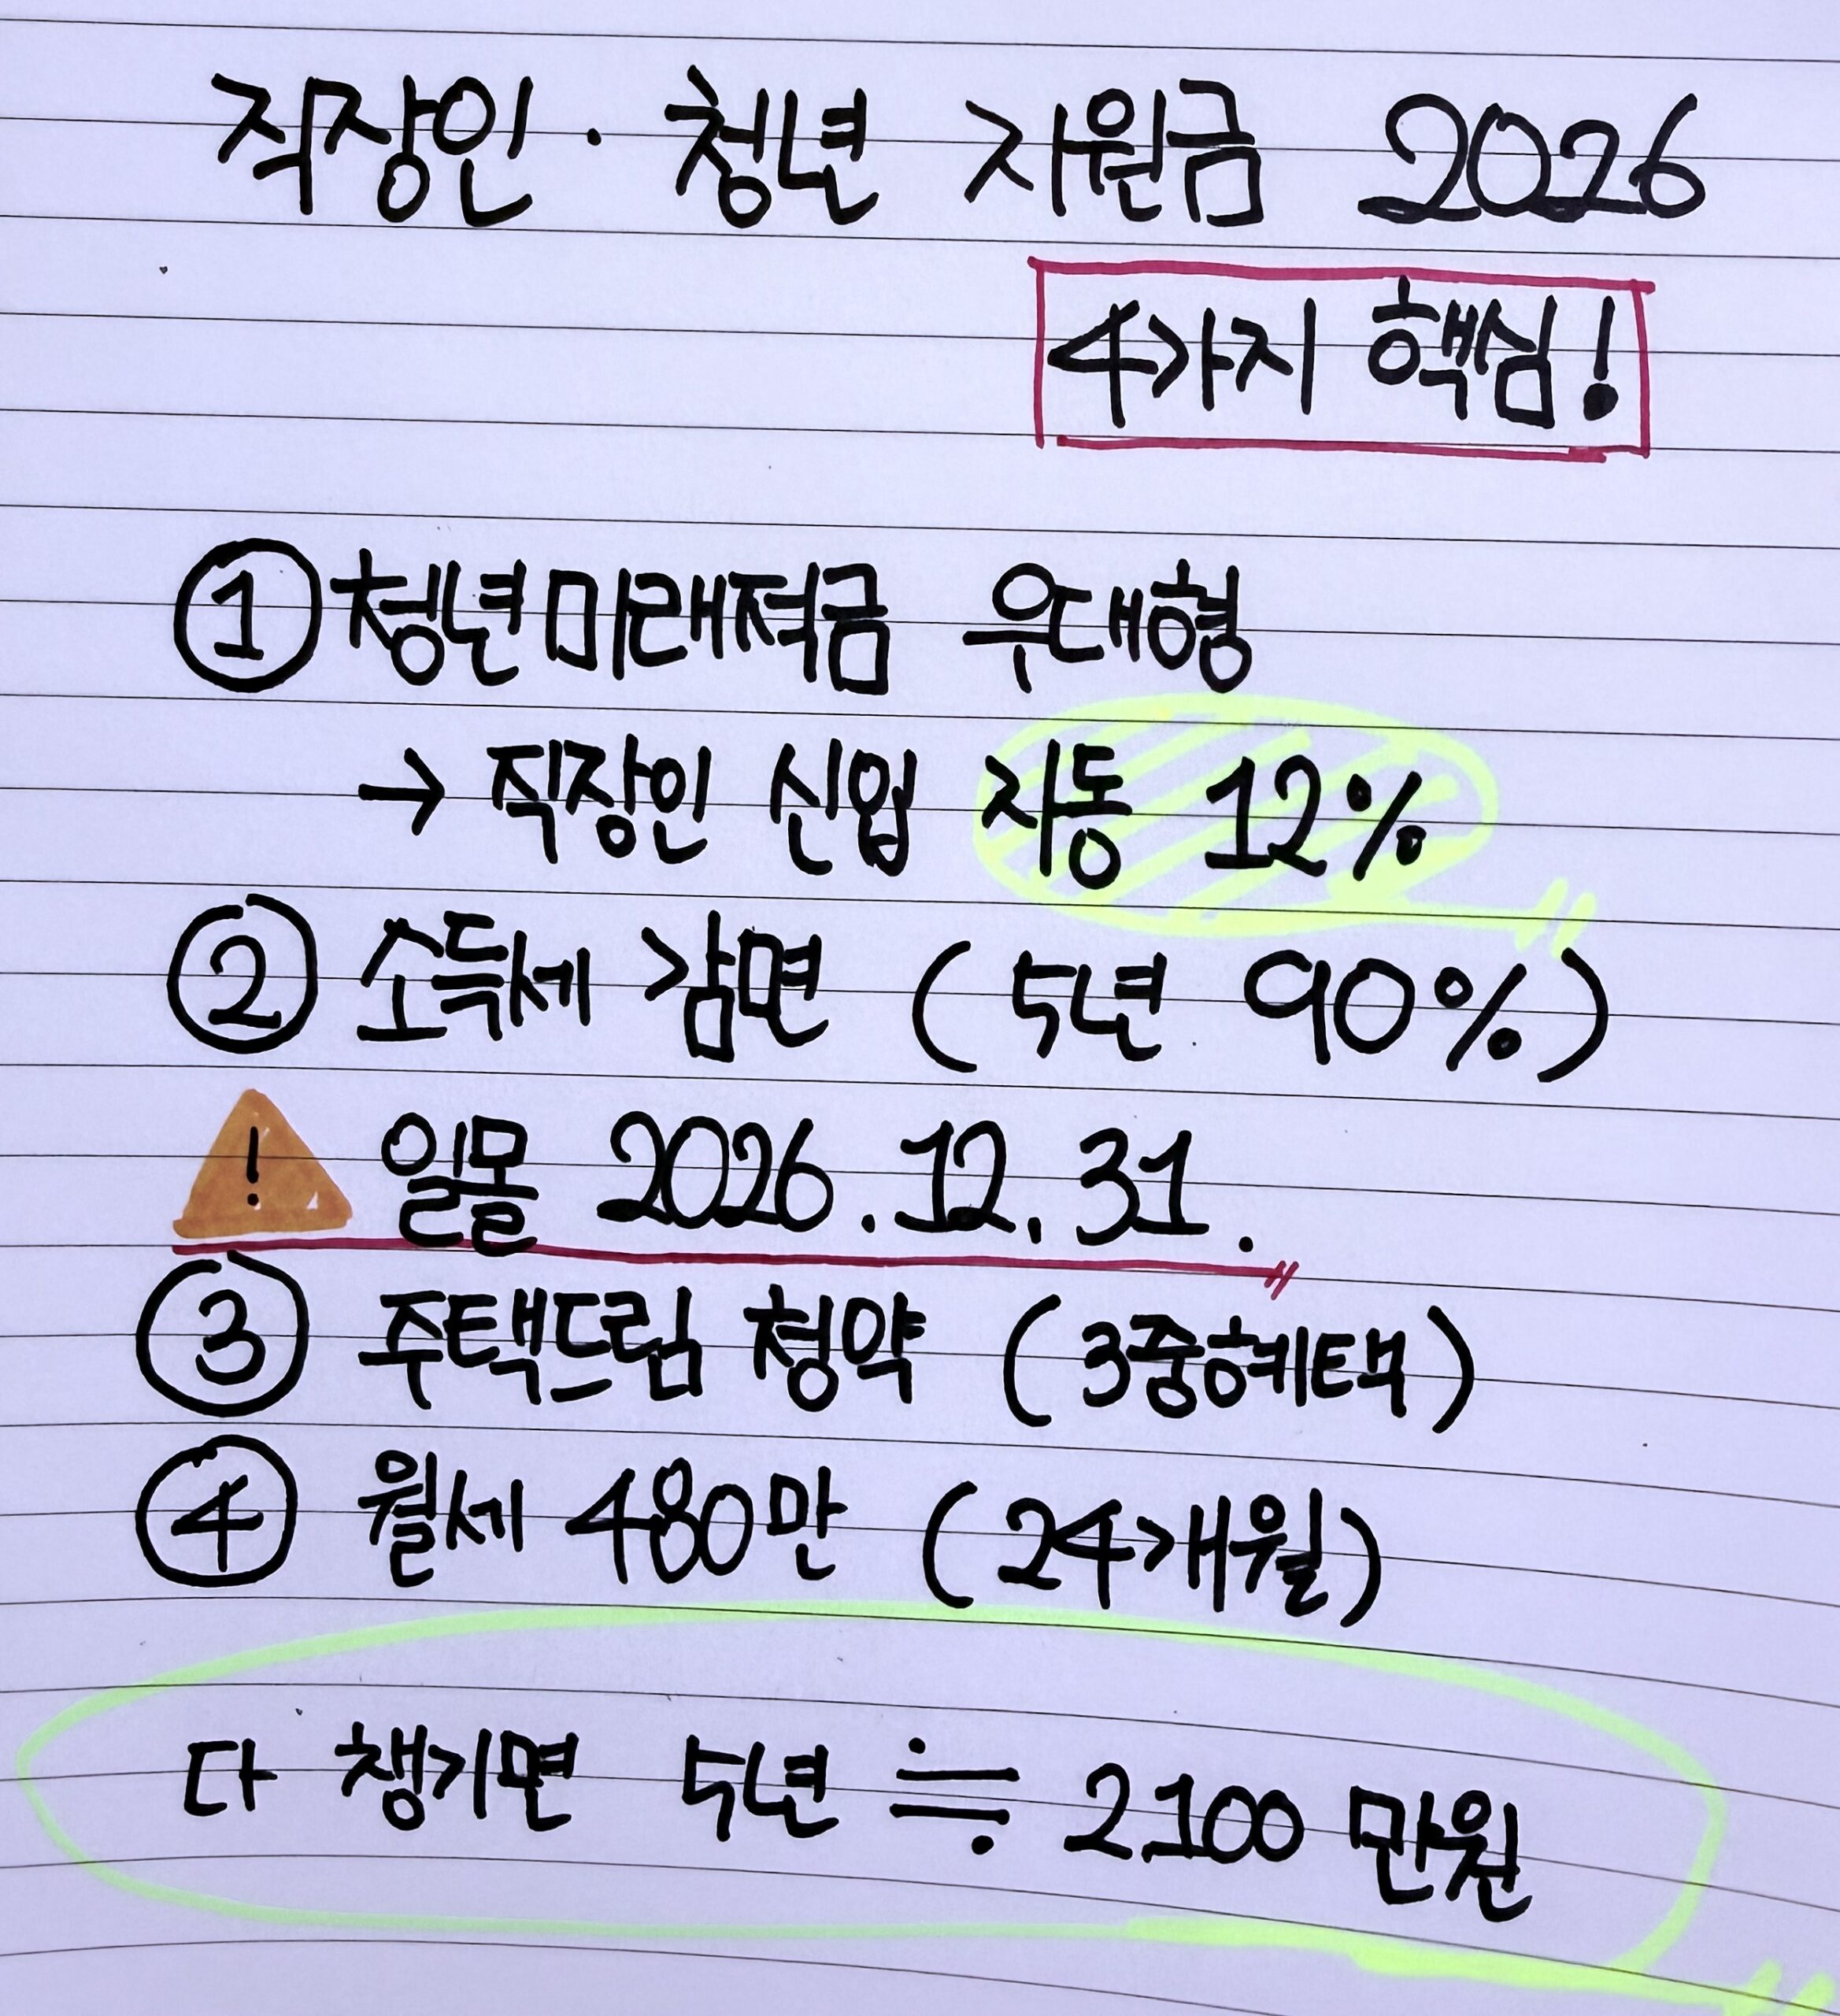 직장인 · 청년 지원금 2026
4가지 핵심!
① 청년미래적금 우대형
→ 직장인 신입 자동 12%
② 소득세 감면 (5년 90%)
! 일몰 2026.12.31.
③ 주택드림 청약 (3중혜택)
④ 월세 480만 (24개월)
다 챙기면 5년 ≒ 2,100만원